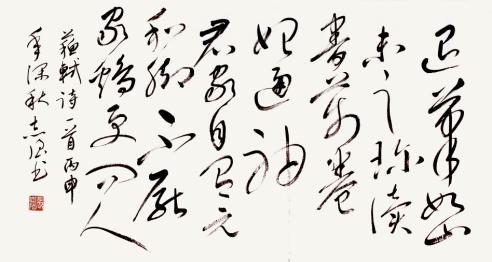 退筆如山
未足珍讀
書萬卷
始通神
君家自有元
和脚不厭
家鷄更問人
蘇軾詩一首丙申
年深秋書